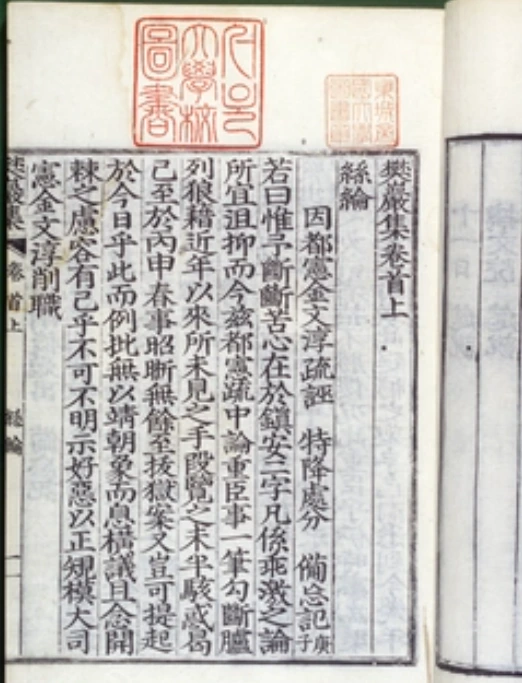 서울
大學校
圖書
樊巖集卷首上
絲綸
因都憲金文淳疏誣 特降處分 備忘記庚子
若曰惟予斷斷苦心在於鎭安二字凡係乖激之論
所宜沮抑而今玆都憲疏中論重臣事一筆勾斷臚
列狼藉近年以來所未見之手段覽之未半駭惑曷
已至於丙申春事昭晣無餘至拔獄案又豈可提起
於今日乎此而例批無以靖朝象而息橫議且念開
棘之慮容有已乎不可不明示好惡以正規模大司
憲金文淳削職
樊巖集 卷首上 絲綸 一